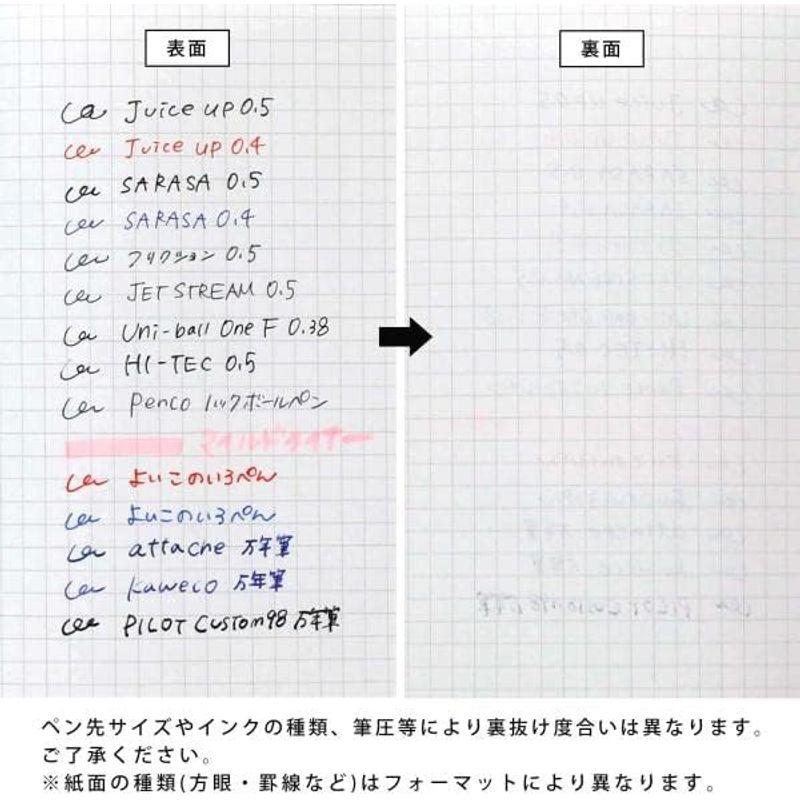 表面
ca Juice up 0.5
ca Juice up 0.4
ca SARASA 0.5
ca SARASA 0.4
ca フリクション 0.5
ca JETSTREAM 0.5
ca Uni-ball One F 0.38
ca HI-TEC 0.5
ca Penco ノックボールペン
マイルドライナー
ca よいこのいろぺん
ca よいこのいろぺん
ca attache 万年筆
ca kaweco 万年筆
ca PILOT CUSTOM98 万年筆
裏面
ペン先サイズやインクの種類、筆圧等により裏抜け度合いは異なります。
ご了承ください。
※紙面の種類(方眼・罫線など)はフォーマットにより異なります。